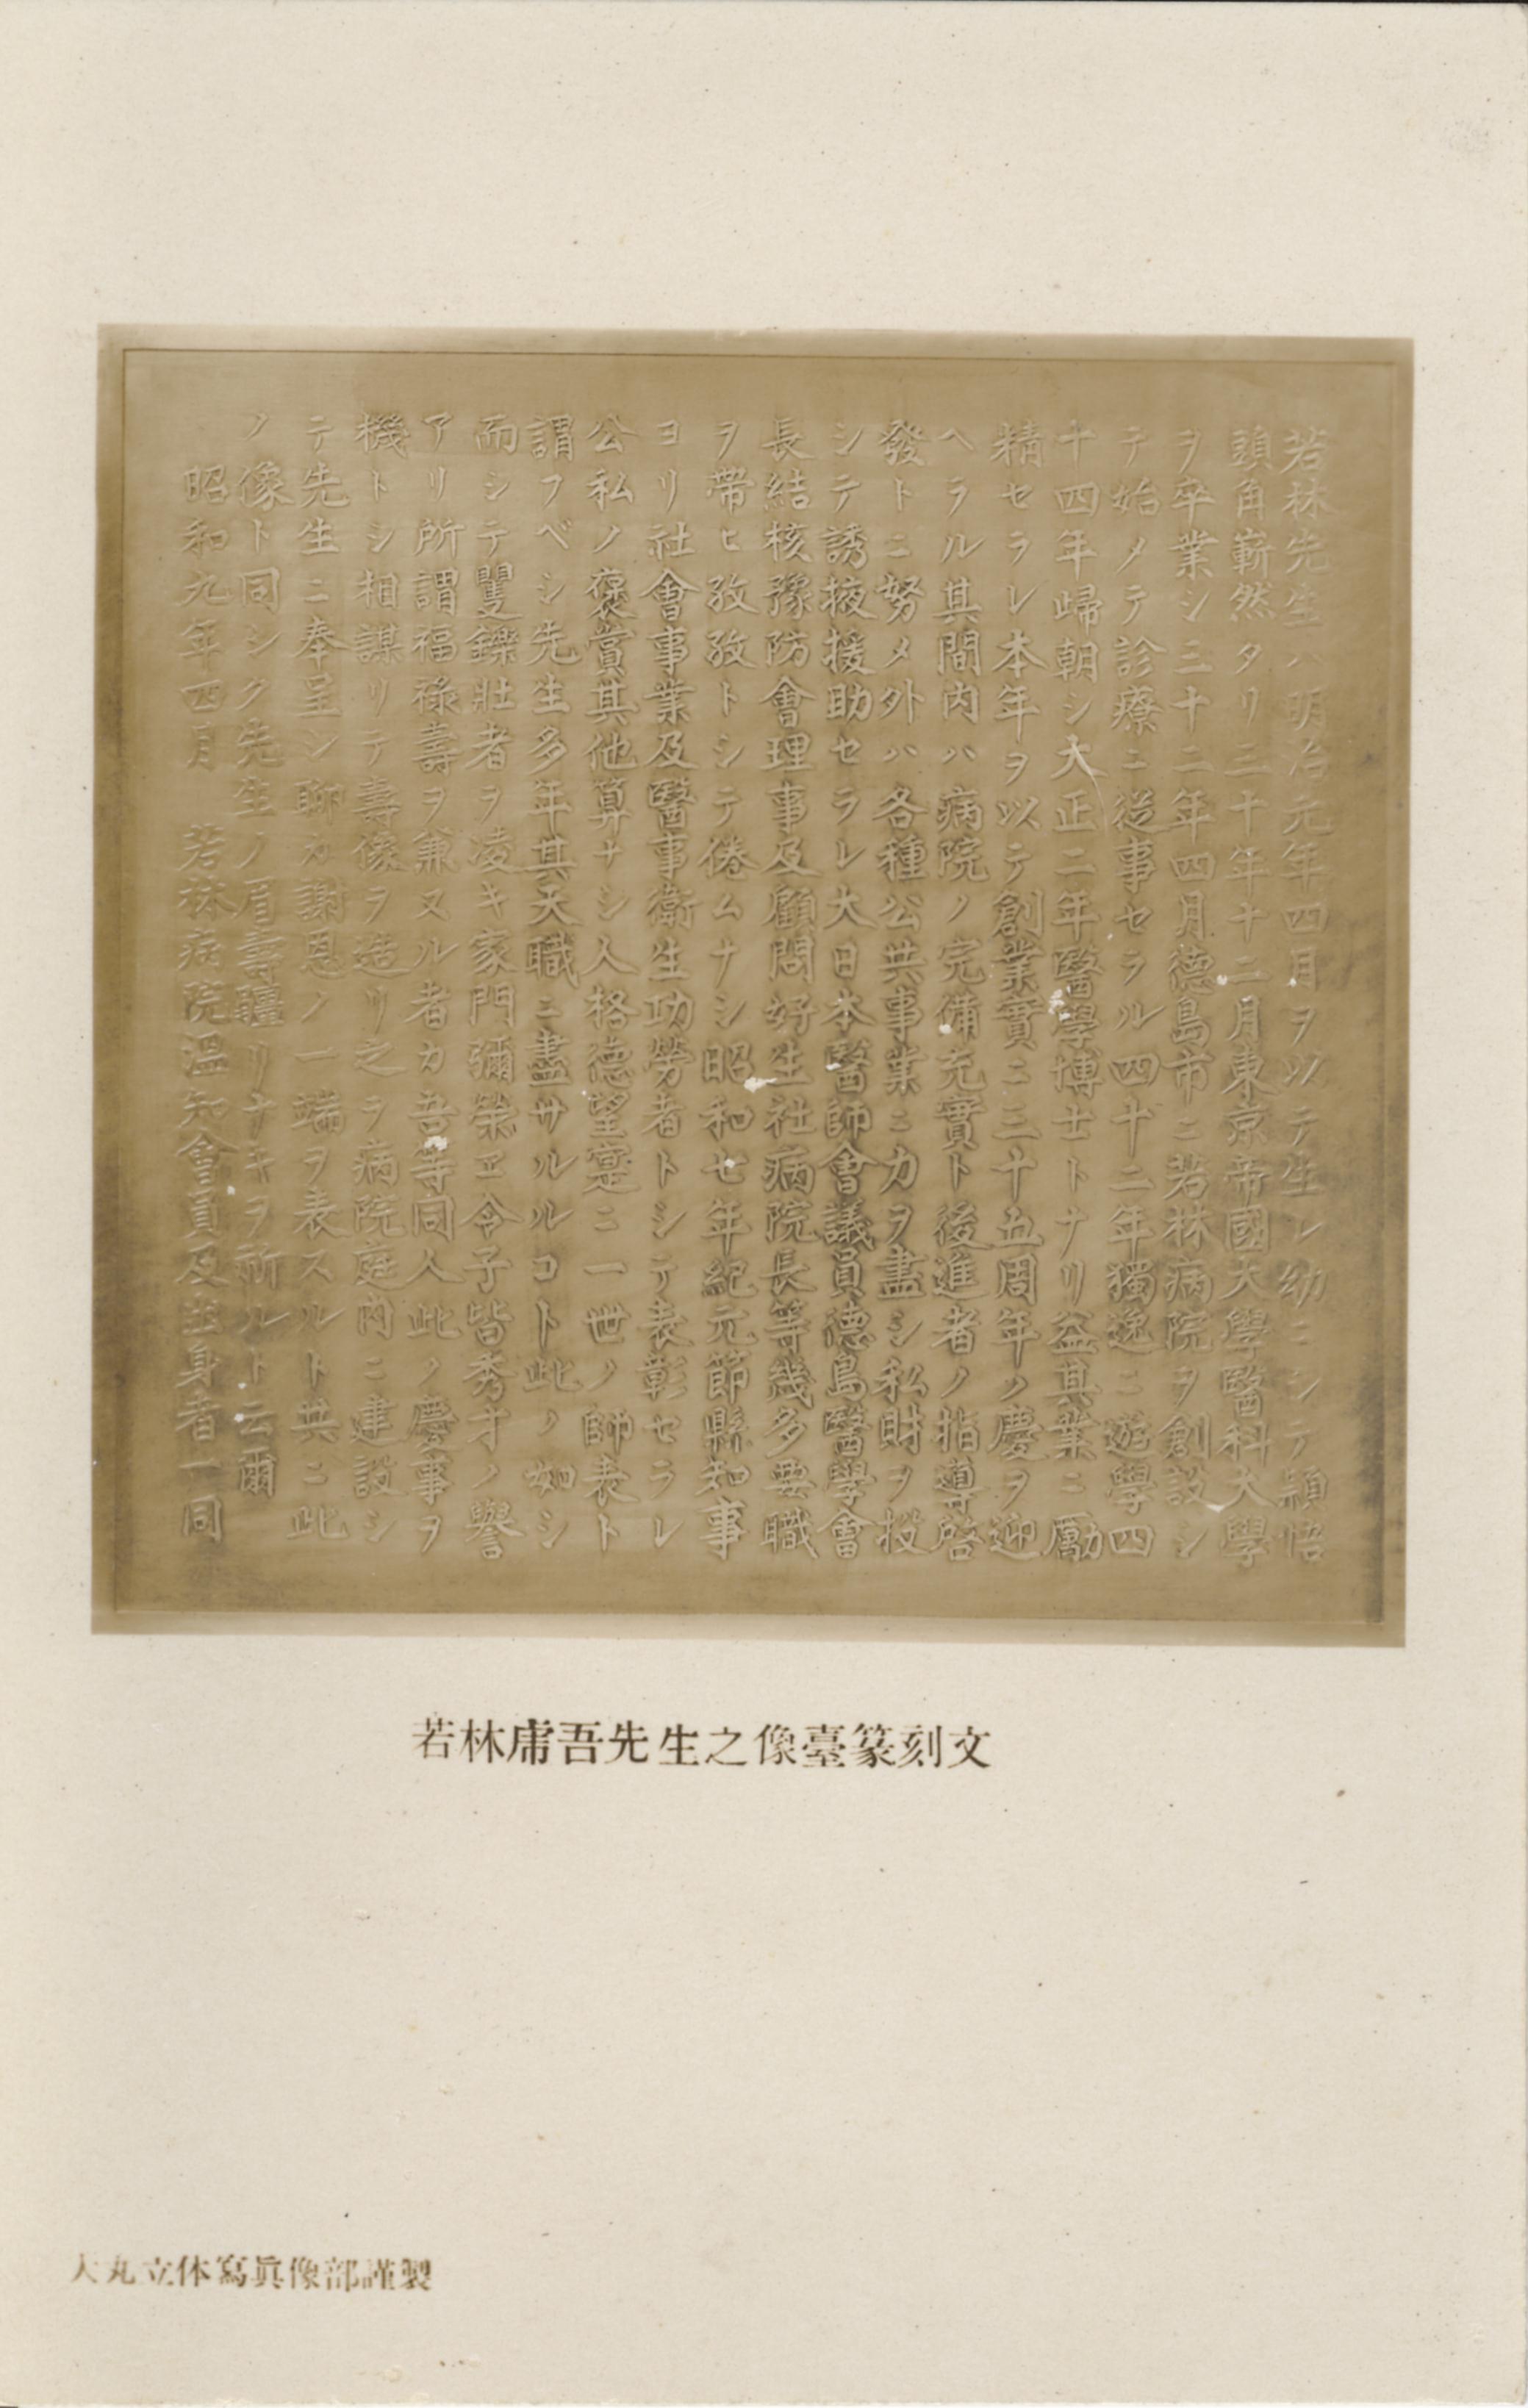 若林先生ハ明治元年四月ヲ以テ生レ幼ニシテ頴悟
頭角嶄然タリ三十年十二月東京帝國大學醫科大學
ヲ卒業シ三十二年四月德島市ニ若林病院ヲ創設シ
テ始メテ診療ニ從事セラル四十二年獨逸ニ遊學四
十四年歸朝シ大正二年醫學博士トナリ益其業ニ勵
精セラレ本年ヲ以テ創業實ニ三十五周年ノ慶ヲ迎
ヘラル其間內ハ病院ノ完備充實ト後進者ノ指導啓
發トニ努メ外ハ各種公共事業ニ力ヲ盡シ私財ヲ投
シテ誘掖援助セラレ大日本醫師會議員德島醫學會
長結核豫防會理事及顧問好生社病院長等幾多要職
ヲ帶ヒ孜孜トシテ倦ムナシ昭和七年紀元節縣知事
ヨリ社會事業及醫事衞生功勞者トシテ表彰セラレ
公私ノ褒賞其他算ナシ人格德望寔ニ一世ノ師表ト
謂フベシ先生多年其天職ニ盡サルルコト此ノ如シ
而シテ矍鑠壯者ヲ凌キ家門彌榮エ令子皆秀才ノ譽
アリ所謂福祿壽ヲ兼又ル者カ吾等同人此ノ慶事ヲ
機トシ相謀リテ壽像ヲ造リ之ヲ病院庭內ニ建設シ
テ先生ニ奉呈シ聊カ謝恩ノ一端ヲ表スルト共ニ此
ノ像ト同シク先生ノ眉壽疆リナキヲ祈ルト云爾
昭和九年四月 若林病院溫知會員及出身者一同
若林庸吾先生之像臺篆刻文
大丸立体寫眞像部謹製